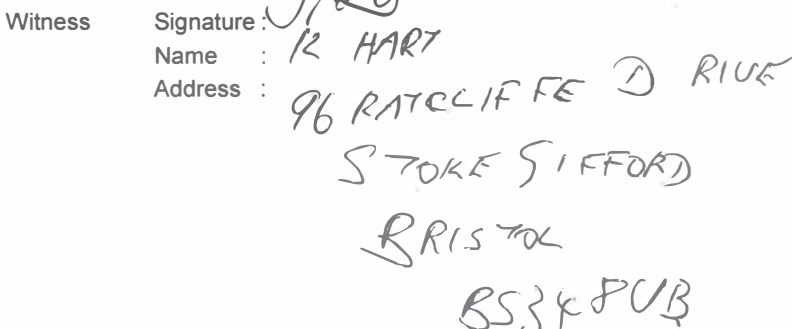 Witness Signature :
Name : R HART
Address : 96 RATCLIFFE DRIVE
STOKE GIFFORD
BRISTOL
BS34 8UB